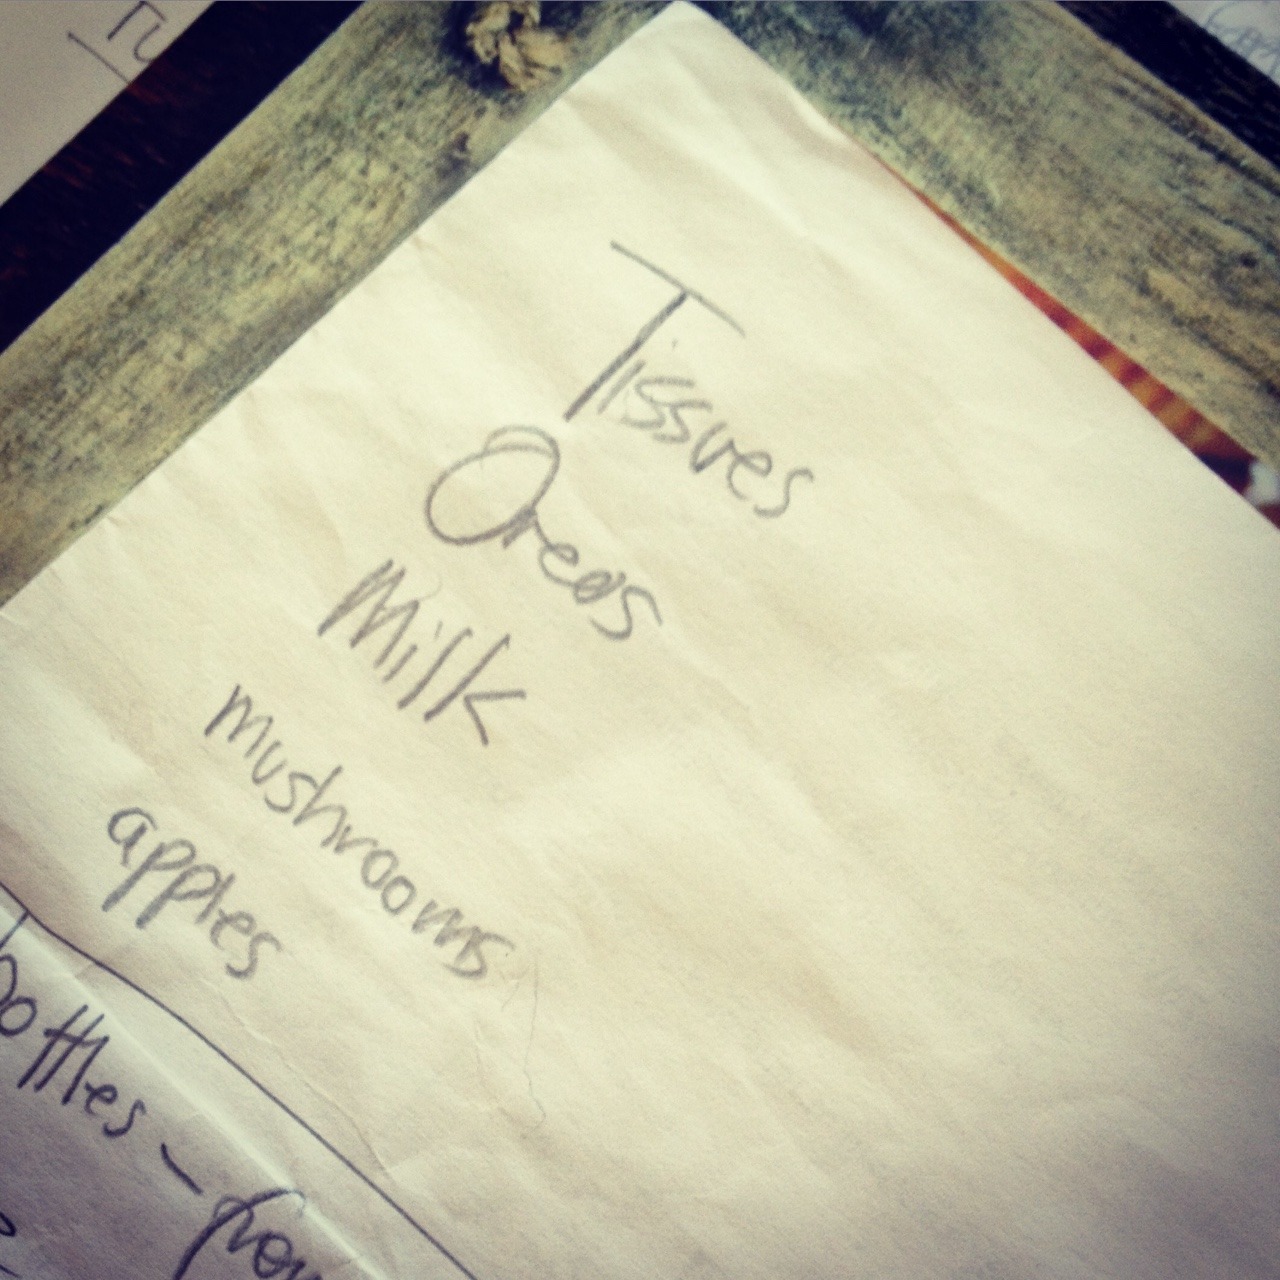 Tissues
Oreos
Milk
mushrooms
apples
bottles -